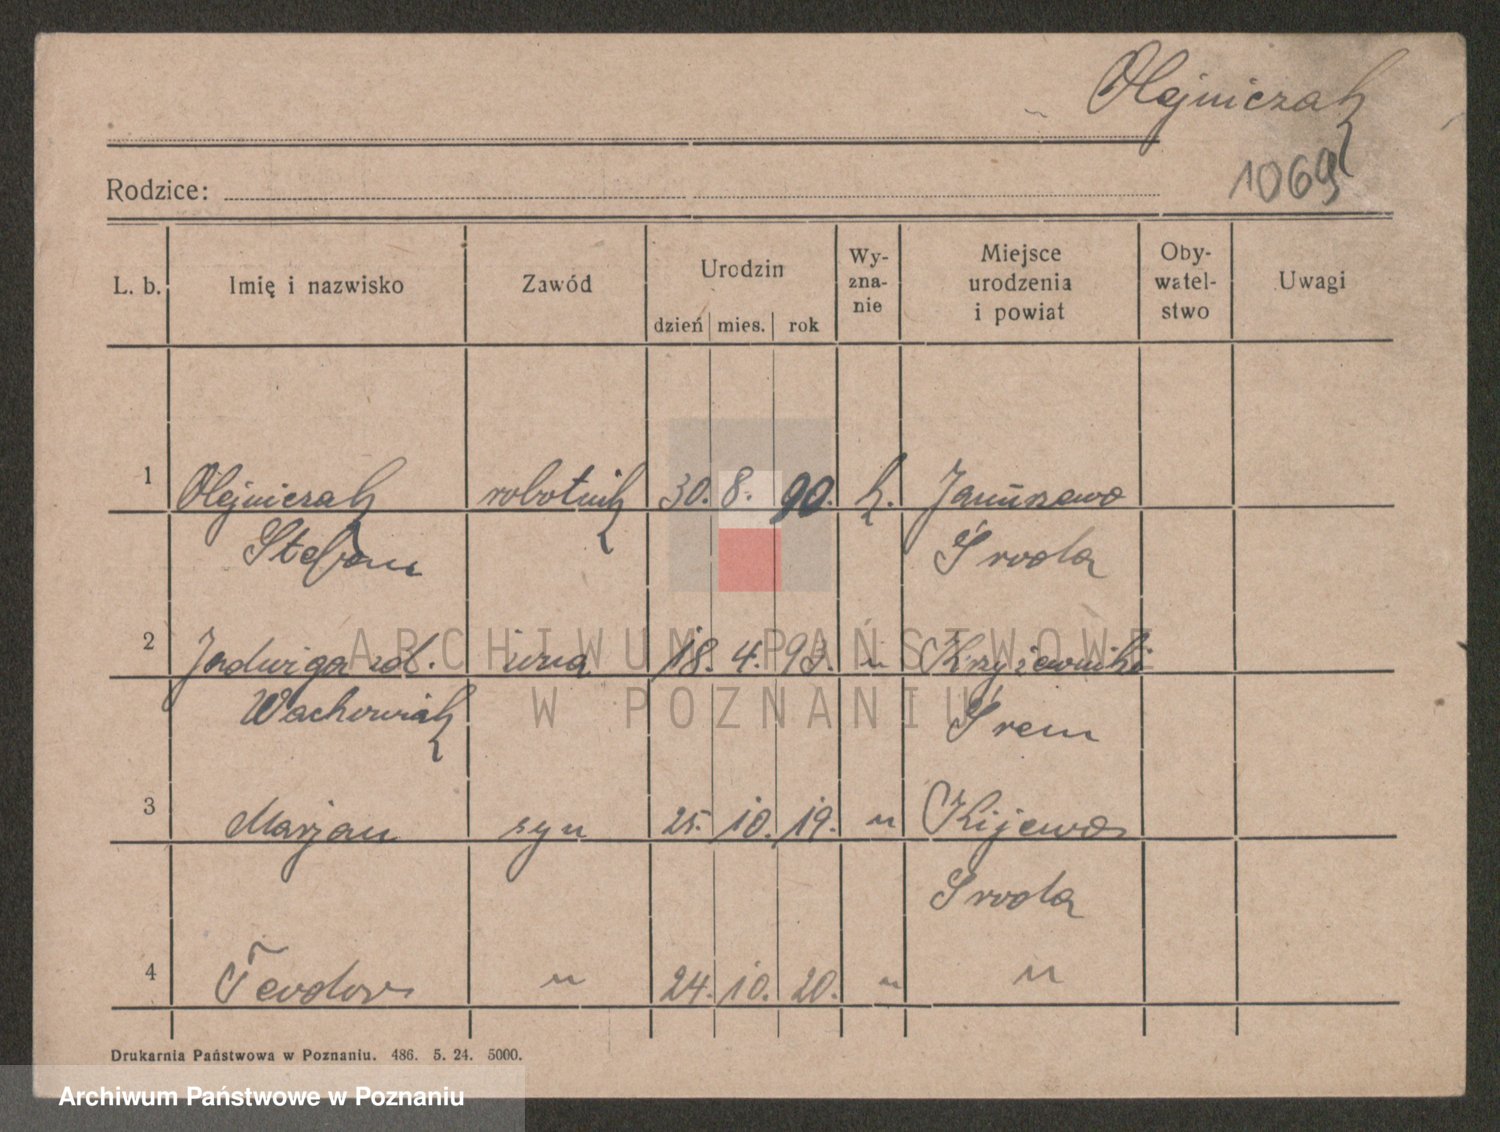 Olejniczak
1069
Rodzice:
L. b. Imię i nazwisko Zawód Urodzin dzień mies. rok Wy-zna-nie Miejsce urodzenia i powiat Oby-watel-stwo Uwagi
1 Olejniczak robotnik 30. 8. 90. k. Januszewo
Stefan Środa
2 Jadwiga zd. żona 18. 4. 93. " Krzyżowniki
Wachowiak Śrem
3 Marjan syn 25. 10. 19. " Kijewo
Środa
4 Teodor " 24. 10. 20. " "
ARCHIWUM PAŃSTWOWE
W POZNANIU
Drukarnia Państwowa w Poznaniu. 486. 5. 24. 5000.
Archiwum Państwowe w Poznaniu